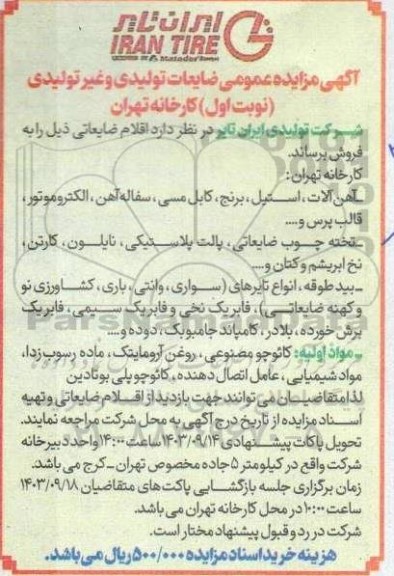 ایران تایر
IRAN TIRE
آگهی مزایده عمومی ضایعات تولیدی و غیر تولیدی
(نوبت اول) کارخانه تهران
شرکت تولیدی ایران تایر در نظر دارد اقلام ضایعاتی ذیل را به
فروش برساند.
کارخانه تهران:
ـ آهن آلات، استیل، برنج، کابل مسی، سفاله آهن، الکتروموتور،
قالب پرس و....
ـ تخته چوب ضایعاتی، پالت پلاستیکی، نایلون، کارتن،
نخ ابریشم و کتان و....
ـ بید طوقه، انواع تایرهای (سواری، وانتی، باری، کشاورزی نو
و کهنه ضایعاتی)، فابریک نخی و فابریک سیمی، فابریک
برش خورده، بلادر، کامپاند جامبوبک، دوده و....
ـ مواد اولیه: کائوچو مصنوعی، روغن آروماتیک، ماده رسوب زدا،
مواد شیمیایی، عامل اتصال دهنده، کائوچو پلی بوتادین
لذا متقاضیان می توانند جهت بازدید از اقلام ضایعاتی و تهیه
اسناد مزایده از تاریخ درج آگهی به محل شرکت مراجعه نمایند.
تحویل پاکات پیشنهادی ۱۴۰۳/۰۹/۱۴ ساعت ۱۴:۰۰ واحد دبیرخانه
شرکت واقع در کیلومتر ۵ جاده مخصوص تهران ـ کرج می باشد.
زمان برگزاری جلسه بازگشایی پاکت های متقاضیان ۱۴۰۳/۰۹/۱۸
ساعت ۱۰:۰۰ در محل کارخانه تهران می باشد.
شرکت در رد و قبول پیشنهاد مختار است.
هزینه خرید اسناد مزایده ۵۰۰/۰۰۰ ریال می باشد.